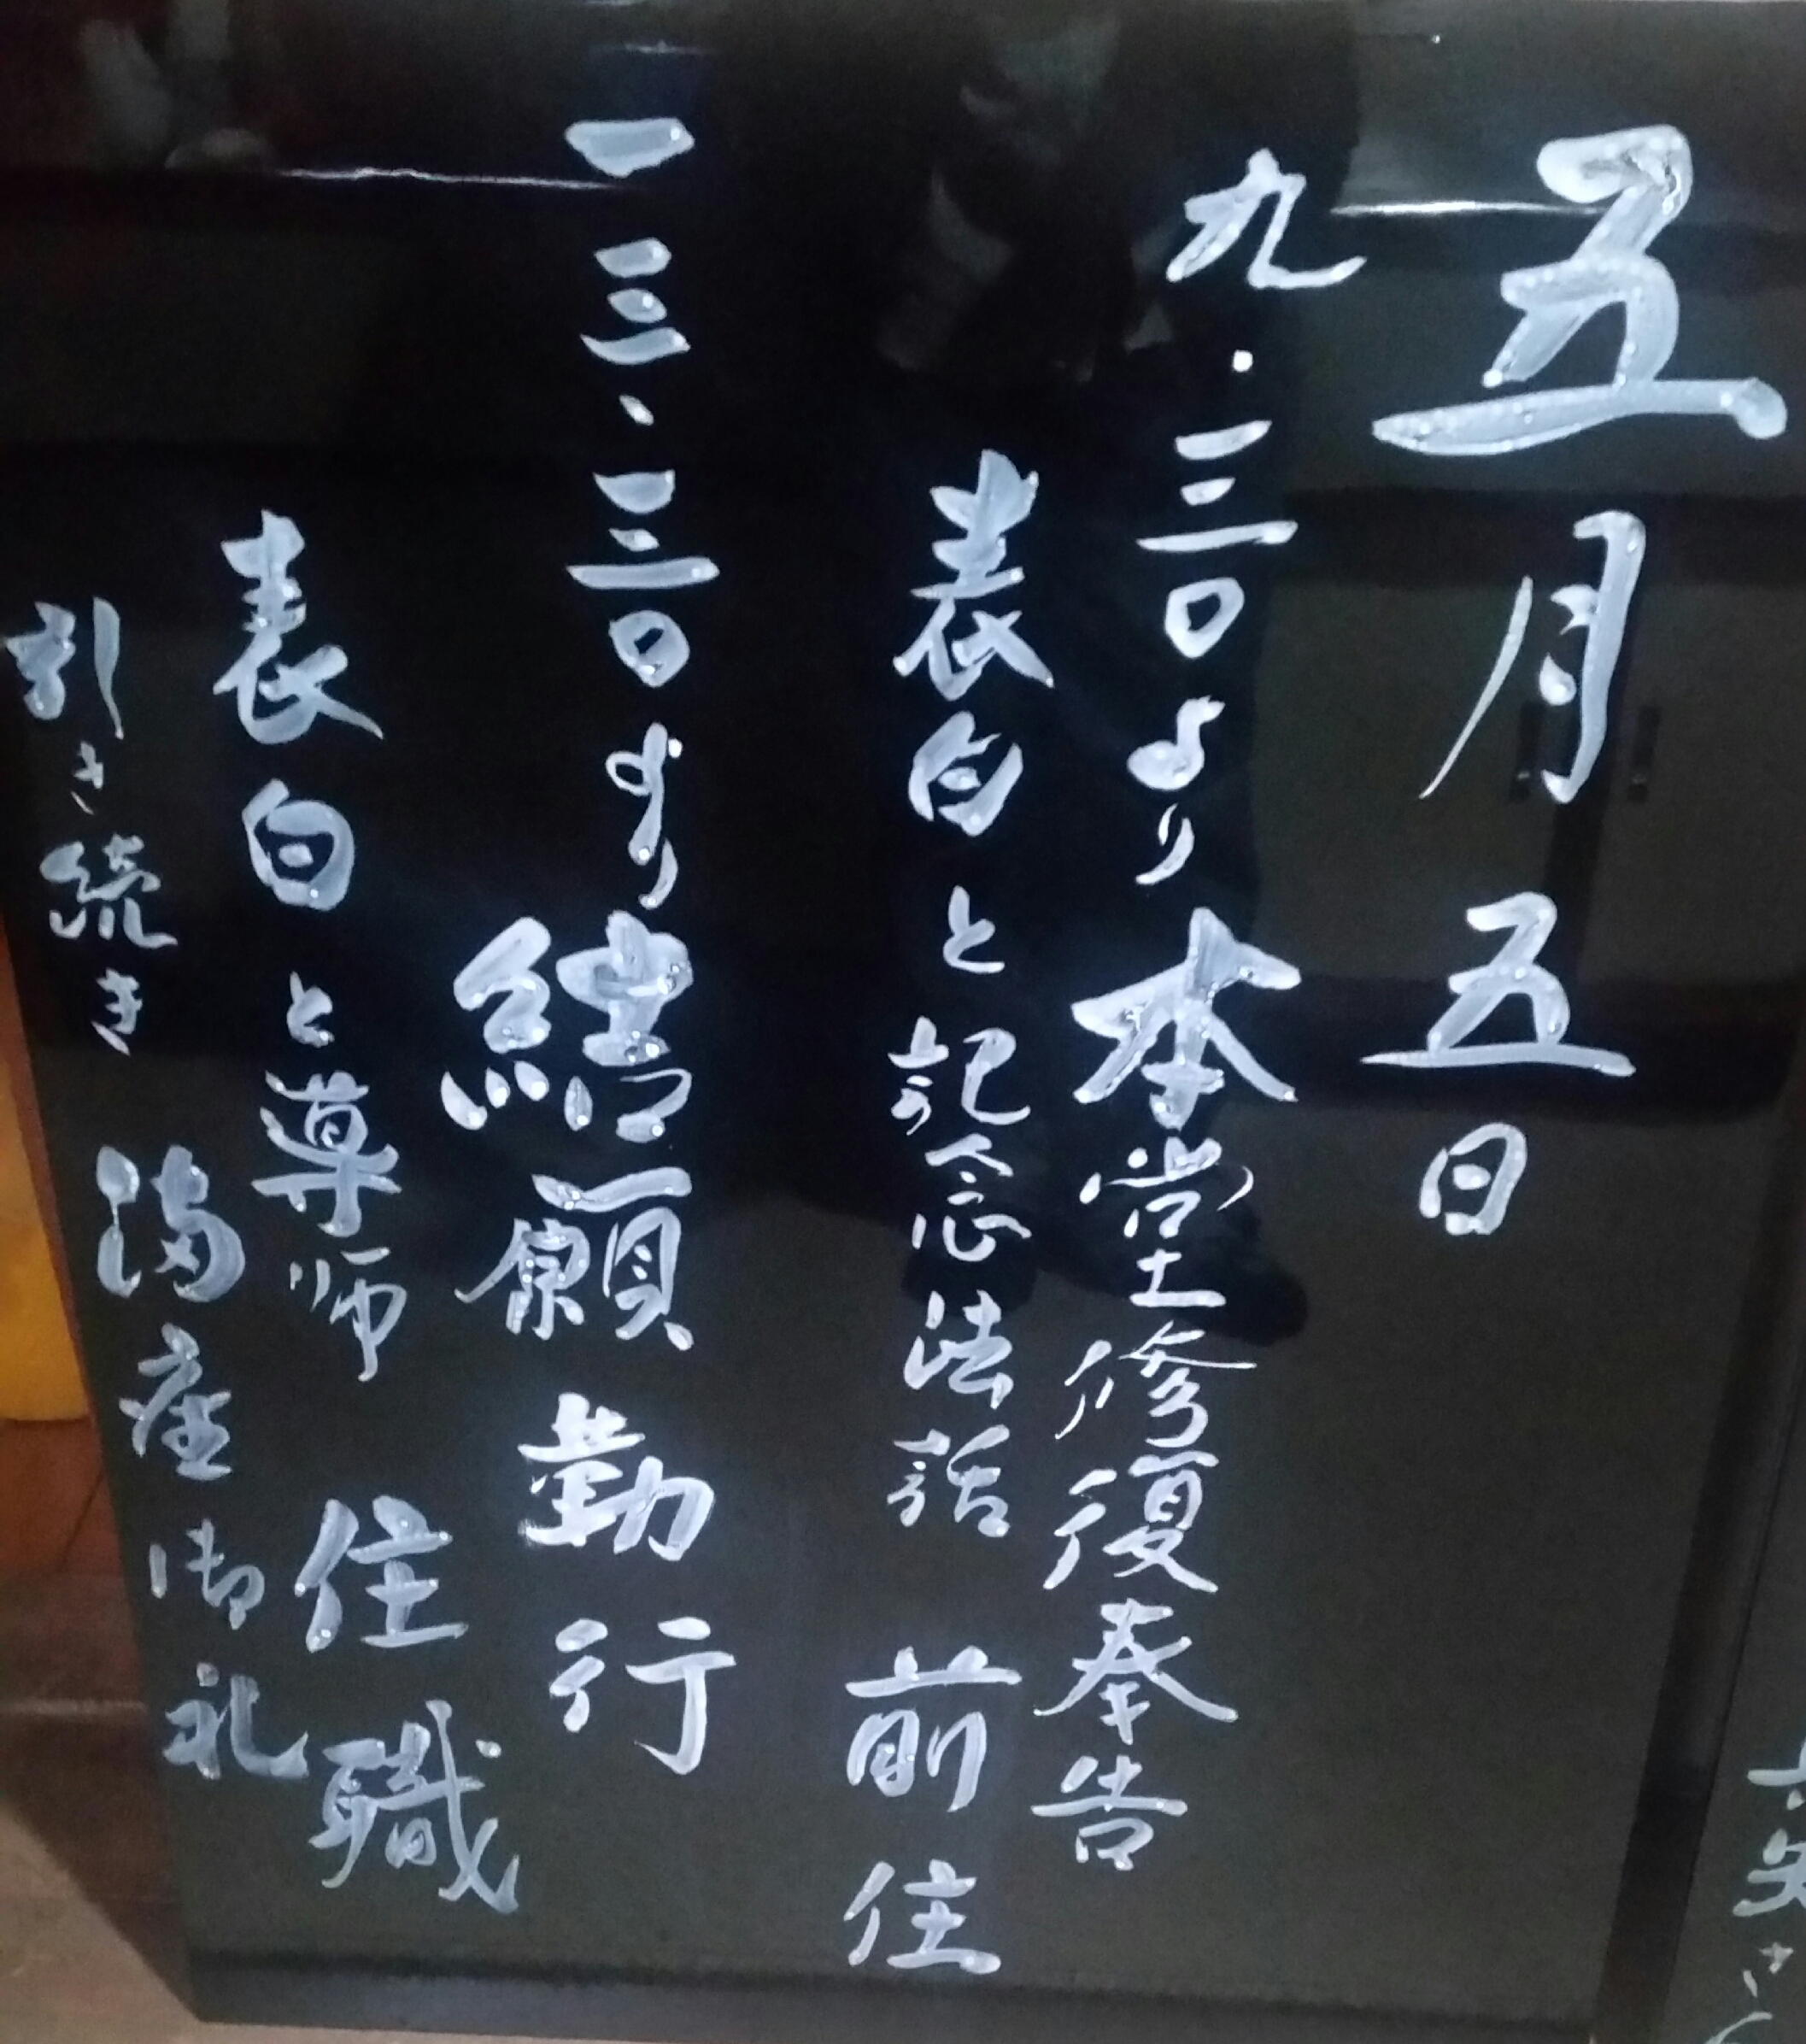 五月五日
九・三〇より本堂修復奉告
表白と記念法話　前住
一三・三〇より結願勤行
表白と導師　住職
引き続き　満座御礼